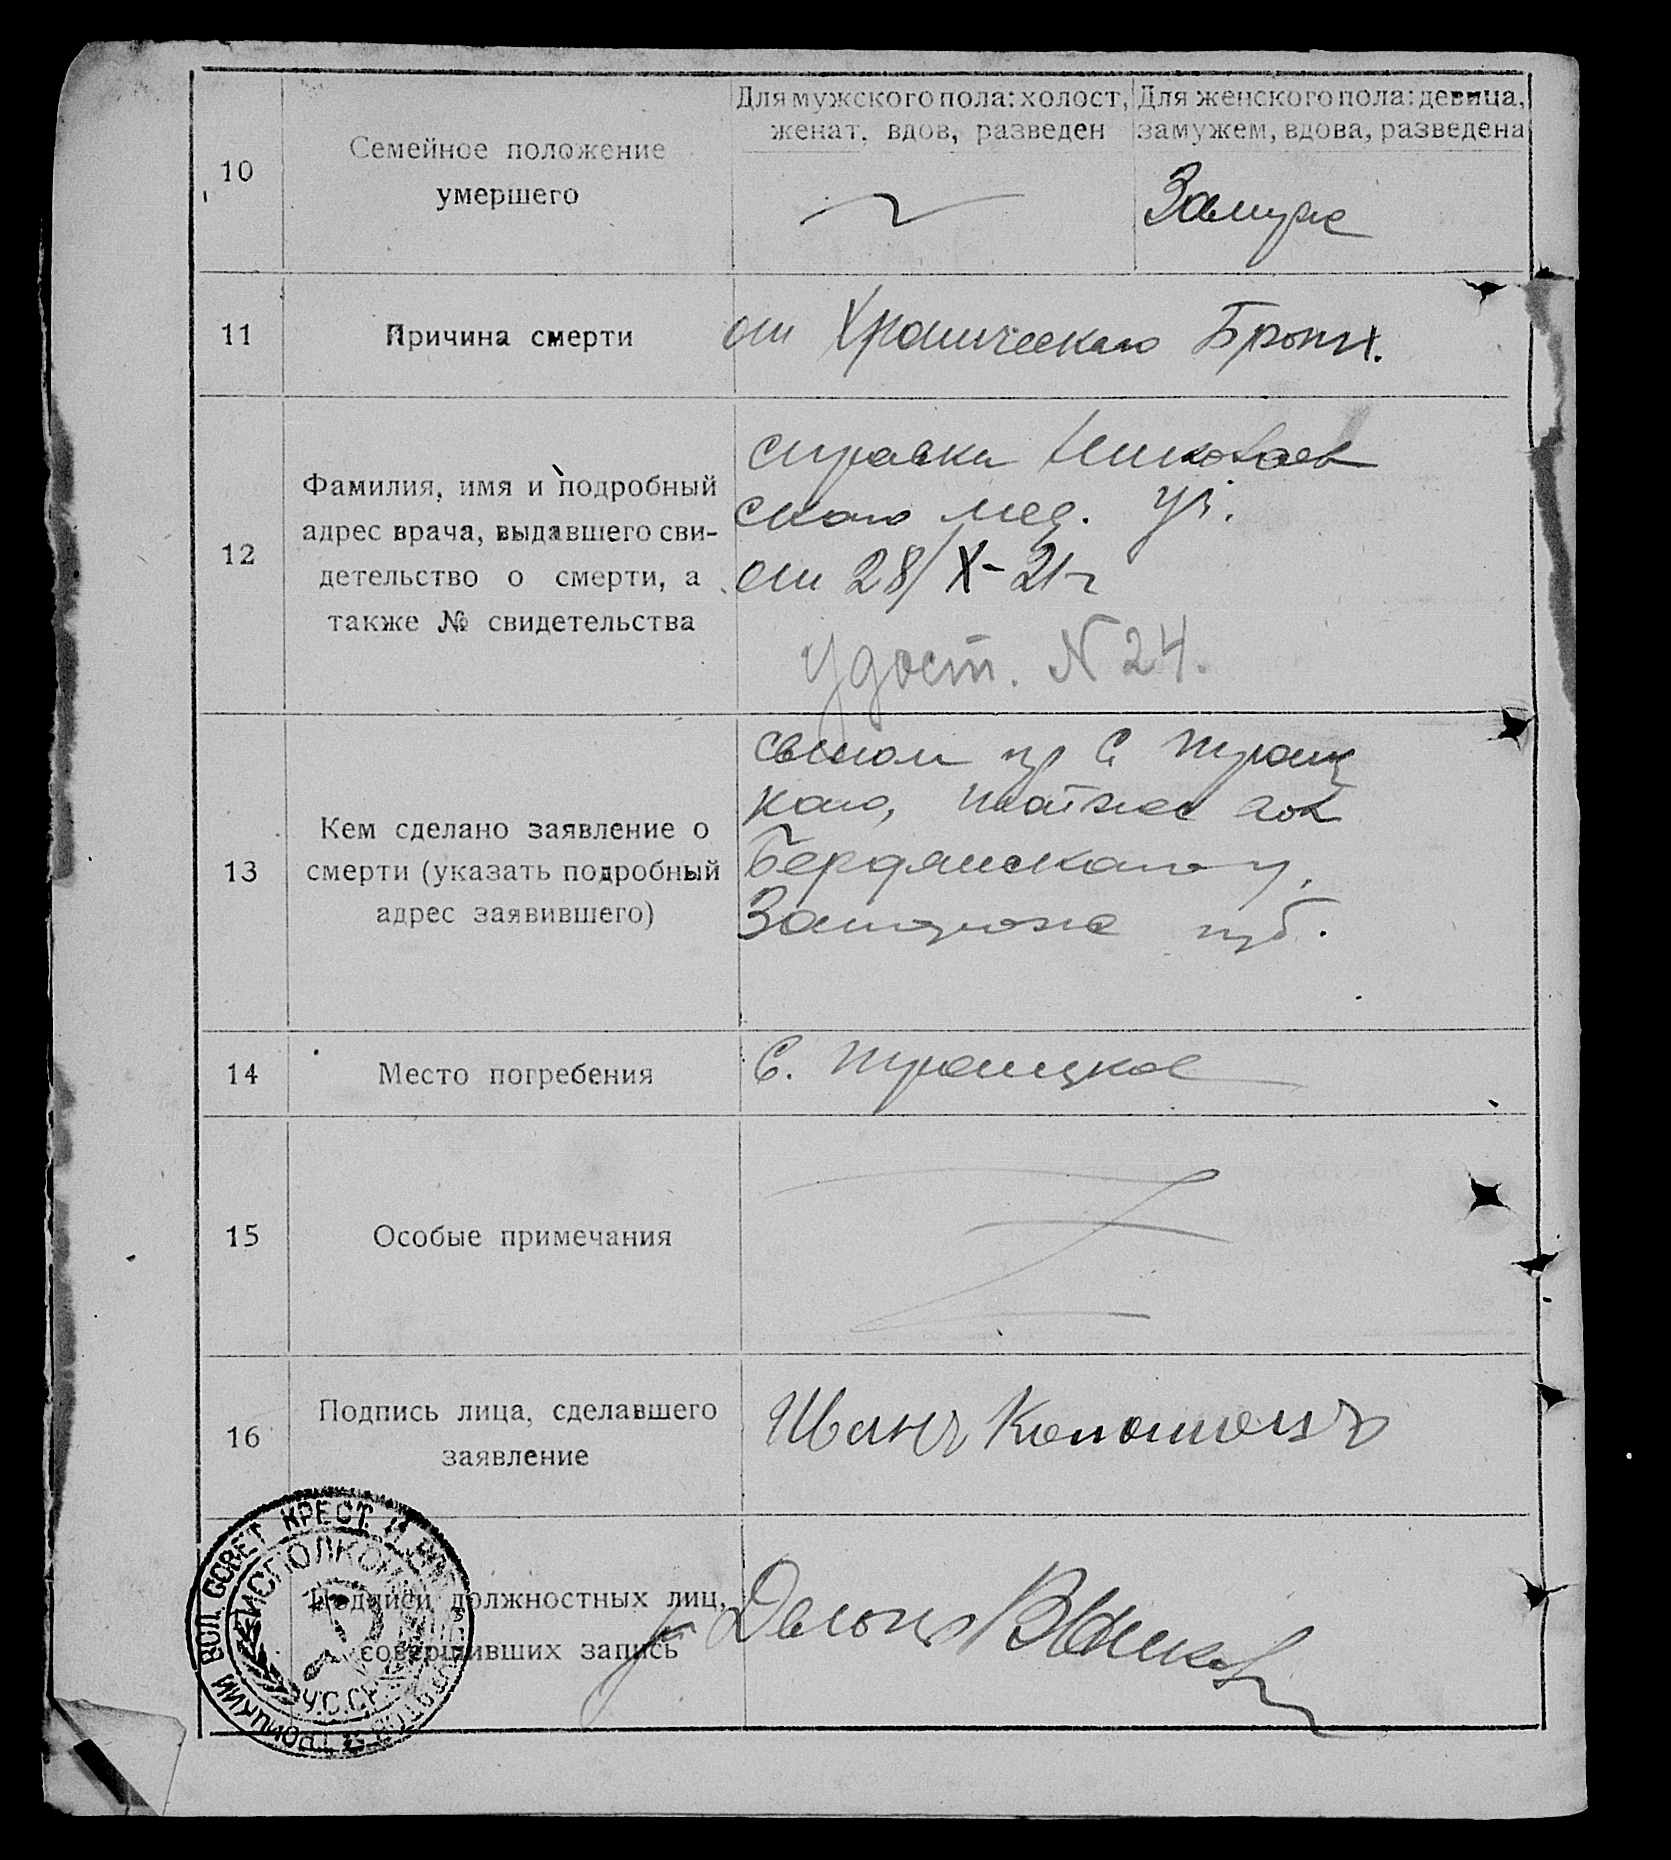 10
Семейное положение
умершего
Для мужского пола: холост,
женат, вдов, разведен
Для женского пола: девица,
замужем, вдова, разведена
Замуж
11
Причина смерти
от Хронического Бронх.
12
Фамилия, имя и подробный
адрес врача, выдавшего сви-
детельство о смерти, а
также № свидетельства
справки Николаев
ского мед.
от 28/X-21 г
удост. N 24.
13
Кем сделано заявление о
смерти (указать подробный
адрес заявившего)
сыном гр С Троиц
кого, той же вол
Бердянского у.
Запорож губ.
14
Место погребения
С. Троицкое
15
Особые примечания
16
Подпись лица, сделавшего
заявление
Иванъ
Подписи должностных лиц,
совершивших запись
ТРОИЦКИЙ ВОЛ. СОВЕТ КРЕСТ. И
ИСПОЛКОМ
У.С.С.Р.